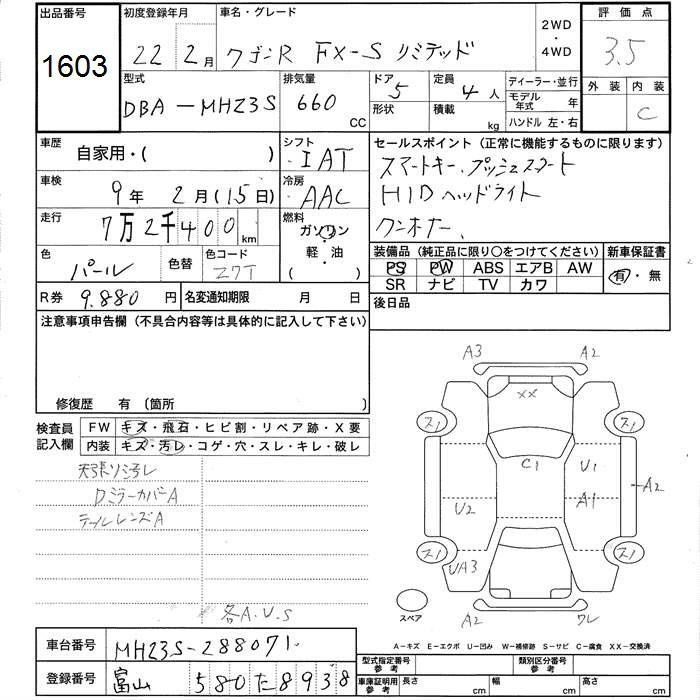 出品番号 初度登録年月 車名・グレード 2WD ・ 4WD 評価点
1603 22 2月 ワゴンR FX-S リミテッド 3.5
型式 排気量 ドア 5 定員 4人 ディーラー・並行 外装 内装
DBA-MHZ3S 660 CC 形状 積載 kg モデル年式 年 C
ハンドル 左・右
車歴 自家用・( ) シフト IAT セールスポイント (正常に機能するものに限ります)
スマートキー、プッシュスタート
車検 9年 2月(15日) 冷房 AAC HIDヘッドライト
走行 7万2千400km 燃料 ガソリン 軽・油 ( ) ワンオーナー、
装備品 (純正品に限り○をつけてください) 新車保証書
色 パール 色替 色コード Z7T PS PW ABS エアB AW 有・無
SR ナビ TV カワ
R券 9.880円 名変通知期限 月 日 後日品
注意事項申告欄 (不具合内容等は具体的に記入して下さい)
修復歴 有 (箇所 )
検査員記入欄 FW キズ・飛石・ヒビ割・リペア跡・X要
内装 キズ・汚レ・コゲ・穴・スレ・キレ・破レ
Dミラーカバー A
テールレンズ A
各A.U.S
A3 A2
XX
ス1 ス1
C1 U1
A2
U2 A1
ス1 ス1
UA3
A2 ワレ
スペア
A-キズ E-エクボ U-凹み W-補修跡 S-サビ C-腐食 XX-交換済
車台番号 MH23S-288071 型式指定番号 参考 類別区分番号 参考
登録番号 富山 580 た 8938 車庫証明用 参考 長さ cm 幅 cm 高さ cm